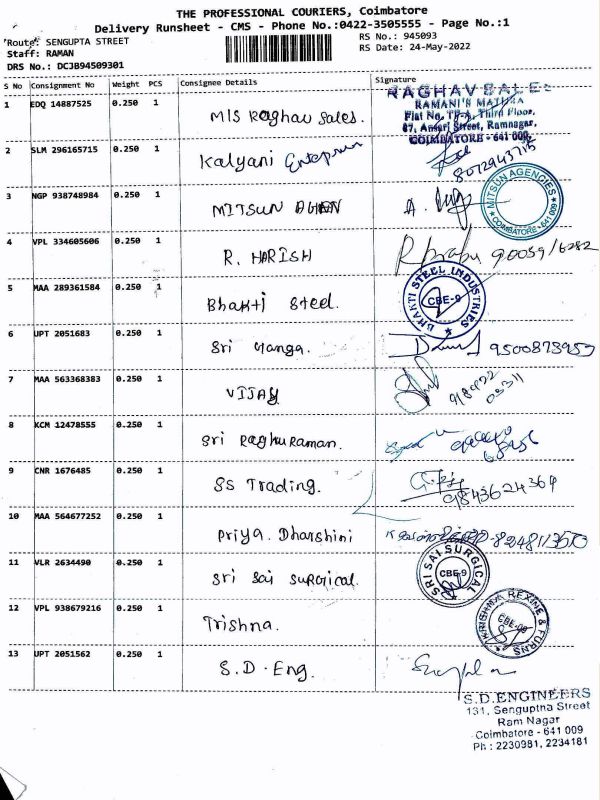 THE PROFESSIONAL COURIERS, Coimbatore
Delivery Runsheet - CMS - Phone No.:0422-3505555 - Page No.:1
Route: SENGUPTA STREET
Staff: RAMAN
DRS No.: DCJB94509301
RS No.: 945093
RS Date: 24-May-2022
S No Consignment No Weight PCS Consignee Details Signature
1 EDQ 14887525 0.250 1 M/S Raghav Sales.
RAGHAV SALES
RAMANI'S MAYURA
Flat No. TF-A, Third Floor,
87, Ansari Street, Ramnagar,
COIMBATORE - 641 009.
2 SLM 296165715 0.250 1 Kalyani
8072943715
3 NGP 938748984 0.250 1 MITSUN
MITSUN AGENCIES
COIMBATORE - 641 009
4 VPL 334605606 0.250 1 R. HARISH
5 MAA 289361584 0.250 1 Bhakti Steel.
BHAKTI STEEL INDUSTRIES
CBE-9
6 UPT 2051683 0.250 1 Sri Ganga.
7 MAA 563368383 0.250 1 VIJAY
8 KCM 12478555 0.250 1 Sri Raghuraman.
9 CNR 1676485 0.250 1 SS Trading.
9843624364
10 MAA 564677252 0.250 1 Priya. Dharshini
11 VLR 2634490 0.250 1 Sri Sai Surgical.
SRI SAI SURGICAL
CBE-9
12 VPL 938679216 0.250 1 Trishna.
KRISHNA REXINE & FURNS
CBE-09
13 UPT 2051562 0.250 1 S.D. Eng.
S.D.ENGINEERS
131, Senguptha Street
Ram Nagar
Coimbatore - 641 009
Ph : 2230981, 2234181